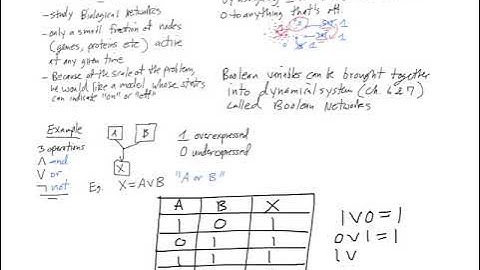 - study Biological Networks
- only a small fraction of nodes
(genes, proteins etc) active
at any given time
- Because of the scale of the problem,
we would like a model whose states
can indicate "on" or "off"
0 to anything that's off.
1
1
Boolean variables can be brought together
into dynamical system (ch. 6&7)
called Boolean Networks
Example
3 operations
∧ and
∨ or
¬ not
A B
X
1 overexpressed
0 underexpressed
Eg, X = A∨B "A or B"
A B X
1 0 1
0 1 1
1 1 1
1∨0 = 1
0∨1 = 1
1∨